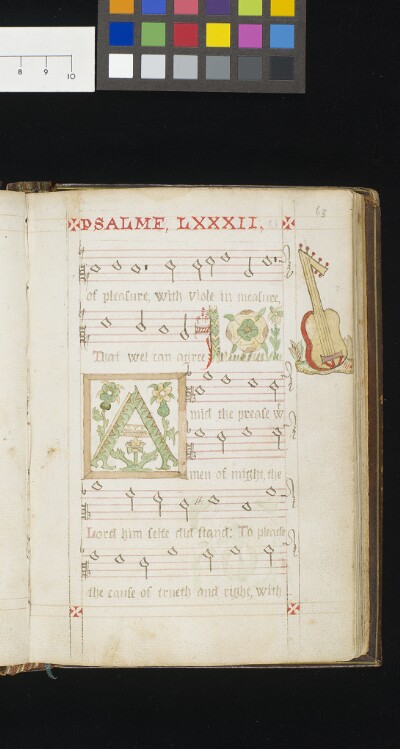 8 9 10
63
PSALME, LXXXII.
of pleasure, with Viole in measure,
That wel can agree
A
mid the prease w
men of might, the
Lord him selfe did stand: To please
the cause of trueth and right, with